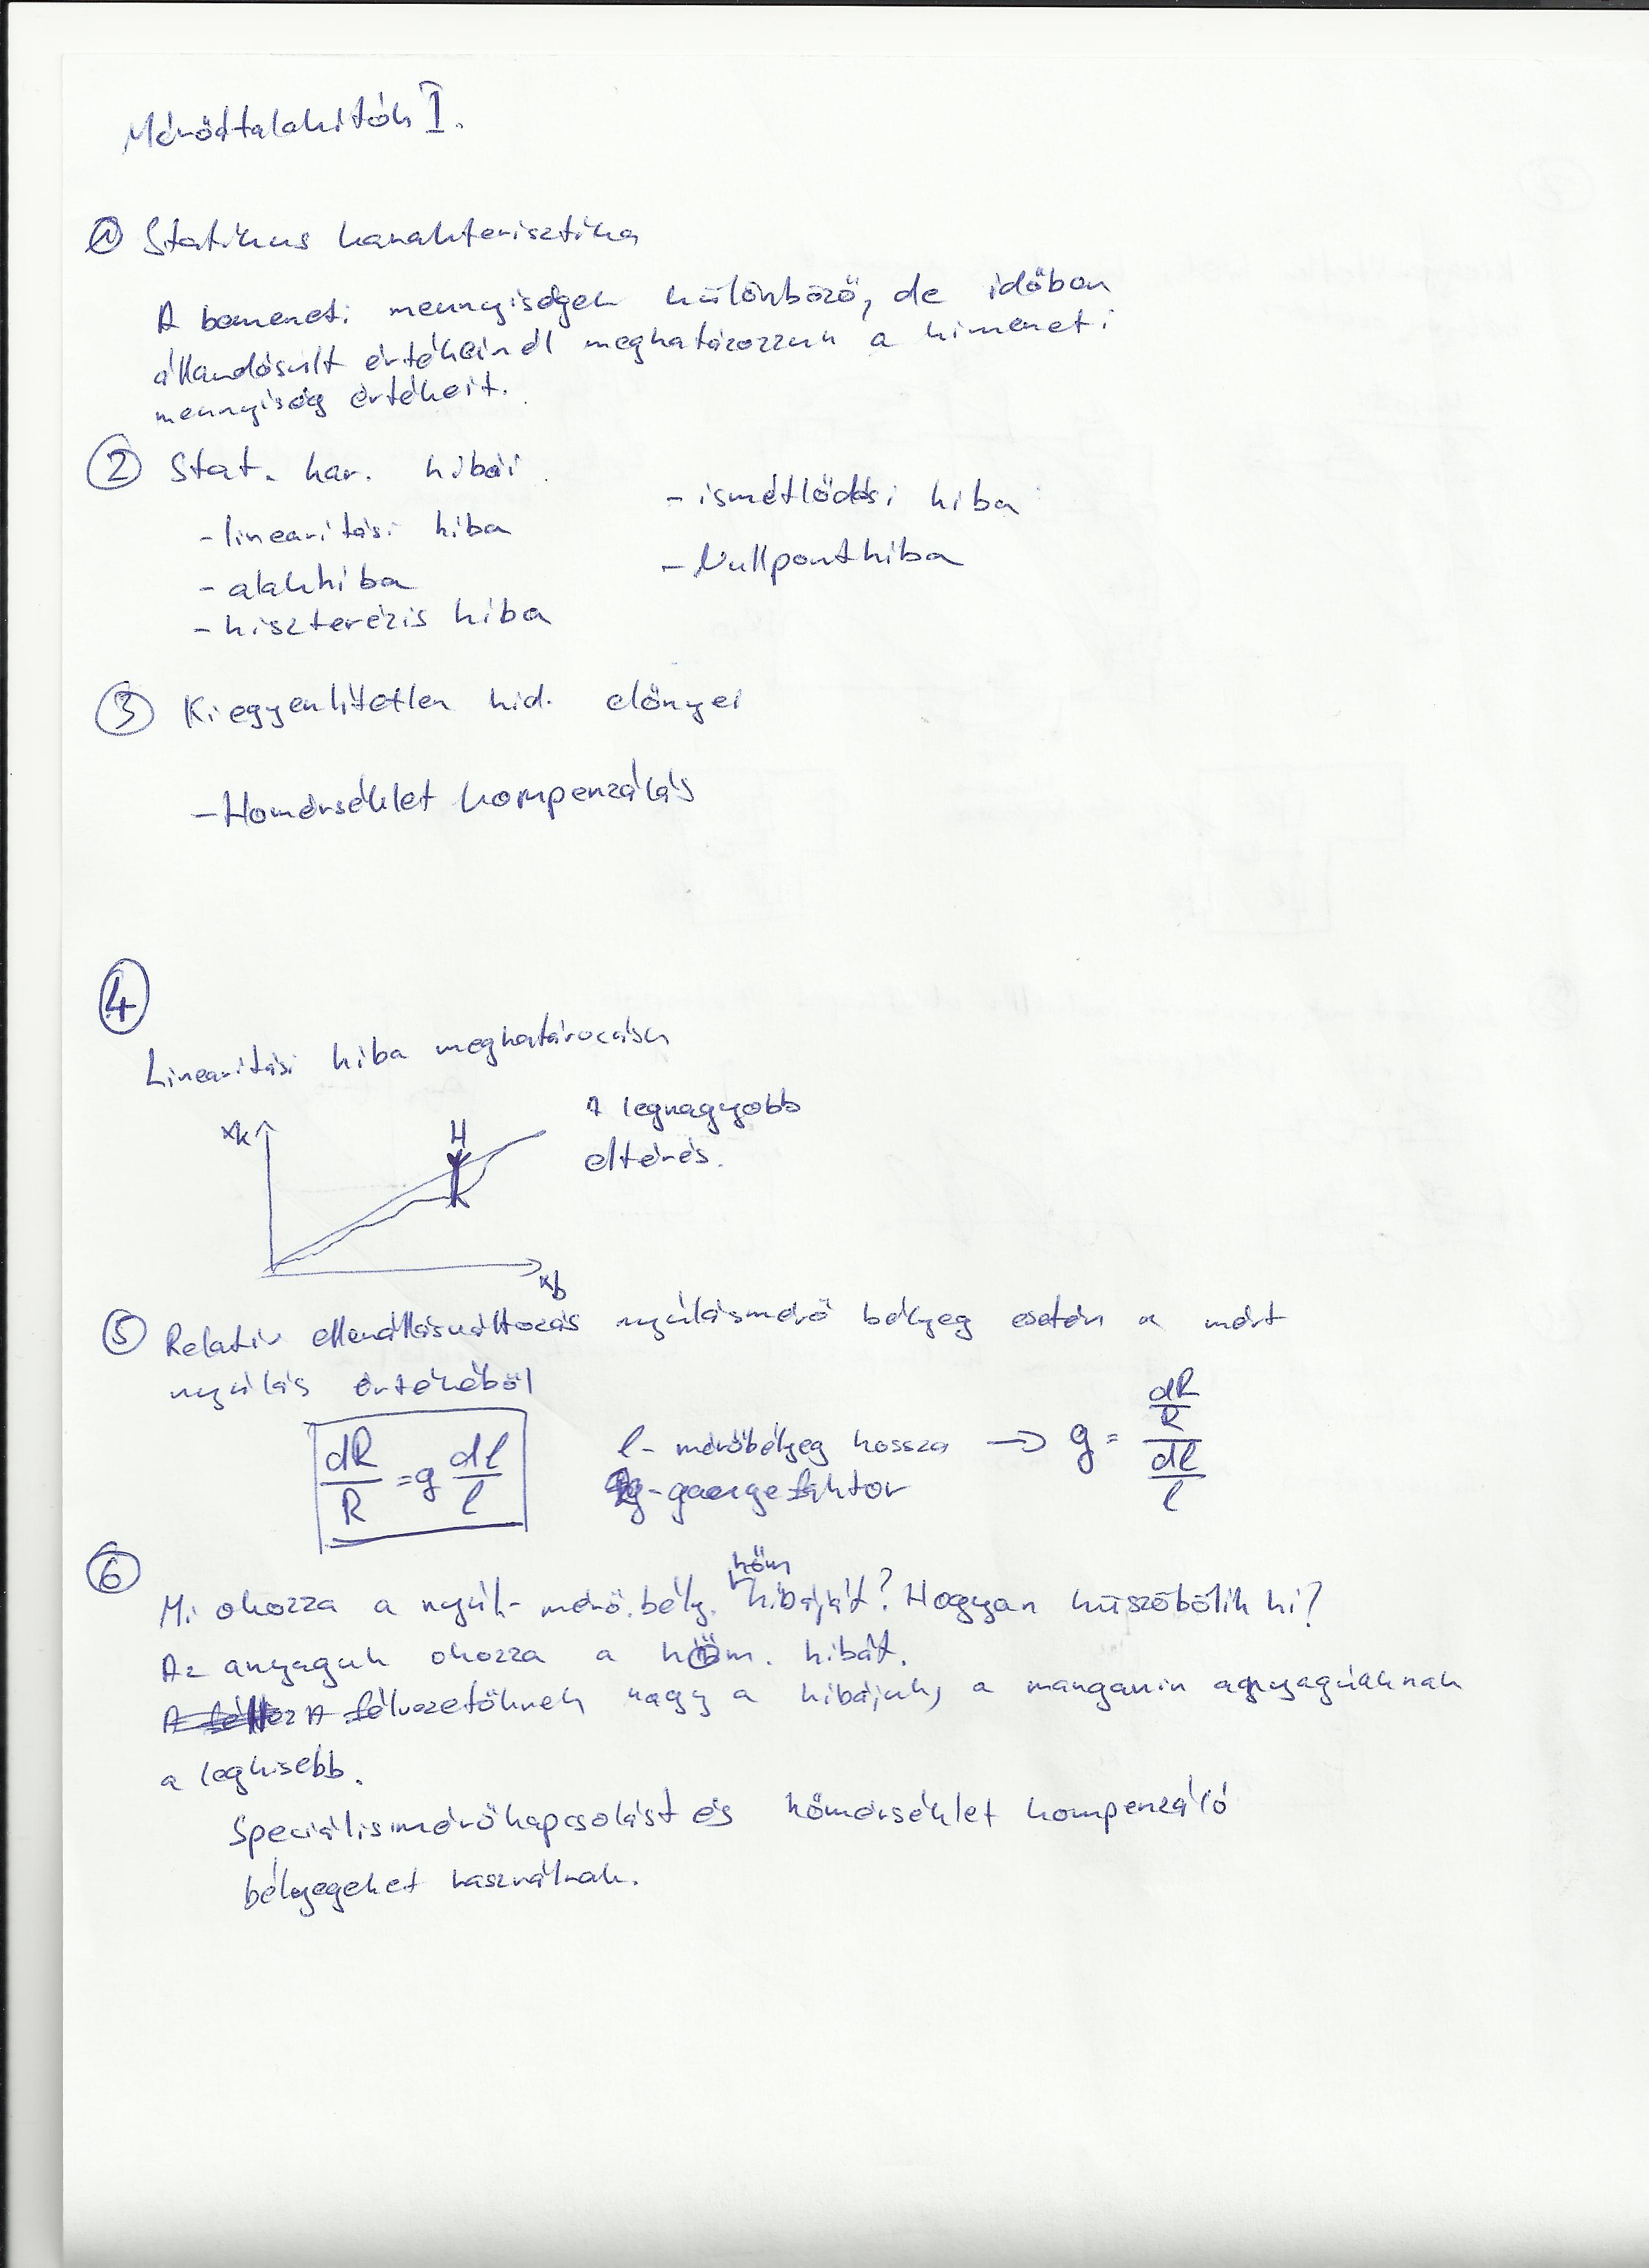 Mérőátalakítók I.
① Statikus karakterisztika
A bemeneti mennyiségek különböző, de időben
állandósult értékeinél meghatározzuk a kimeneti
mennyiség értékeit.
② Stat. kar. hibái
- linearitási hiba
- alakhiba
- hiszterézis hiba
- ismétlődési hiba
- Nullponthiba
③ Kiegyenlítetlen híd. előnyei
- Homérséklet kompenzálás
④
Linearitási hiba meghatározása
xk
H
xb
A legnagyobb
eltérés.
⑤ Relatív ellenállásváltozás nyúlásmérő bélyeg esetén a mért
nyúlás értékéből
dR/R = g dl/l
l - mérőbélyeg hossza → g = (dR/R)/(dl/l)
g - gaugefaktor
⑥
Mi okozza a nyúl- mérő.bély. hőm hibáját? Hogyan küszöbölik ki?
Az anyaguk okozza a hőm. hibát.
A félvezetőknek nagy a hibájuk, a manganin anyagúaknak
a legkisebb.
Speciális mérőkapcsolást és hőmérséklet kompenzáló
bélyegeket használnak.